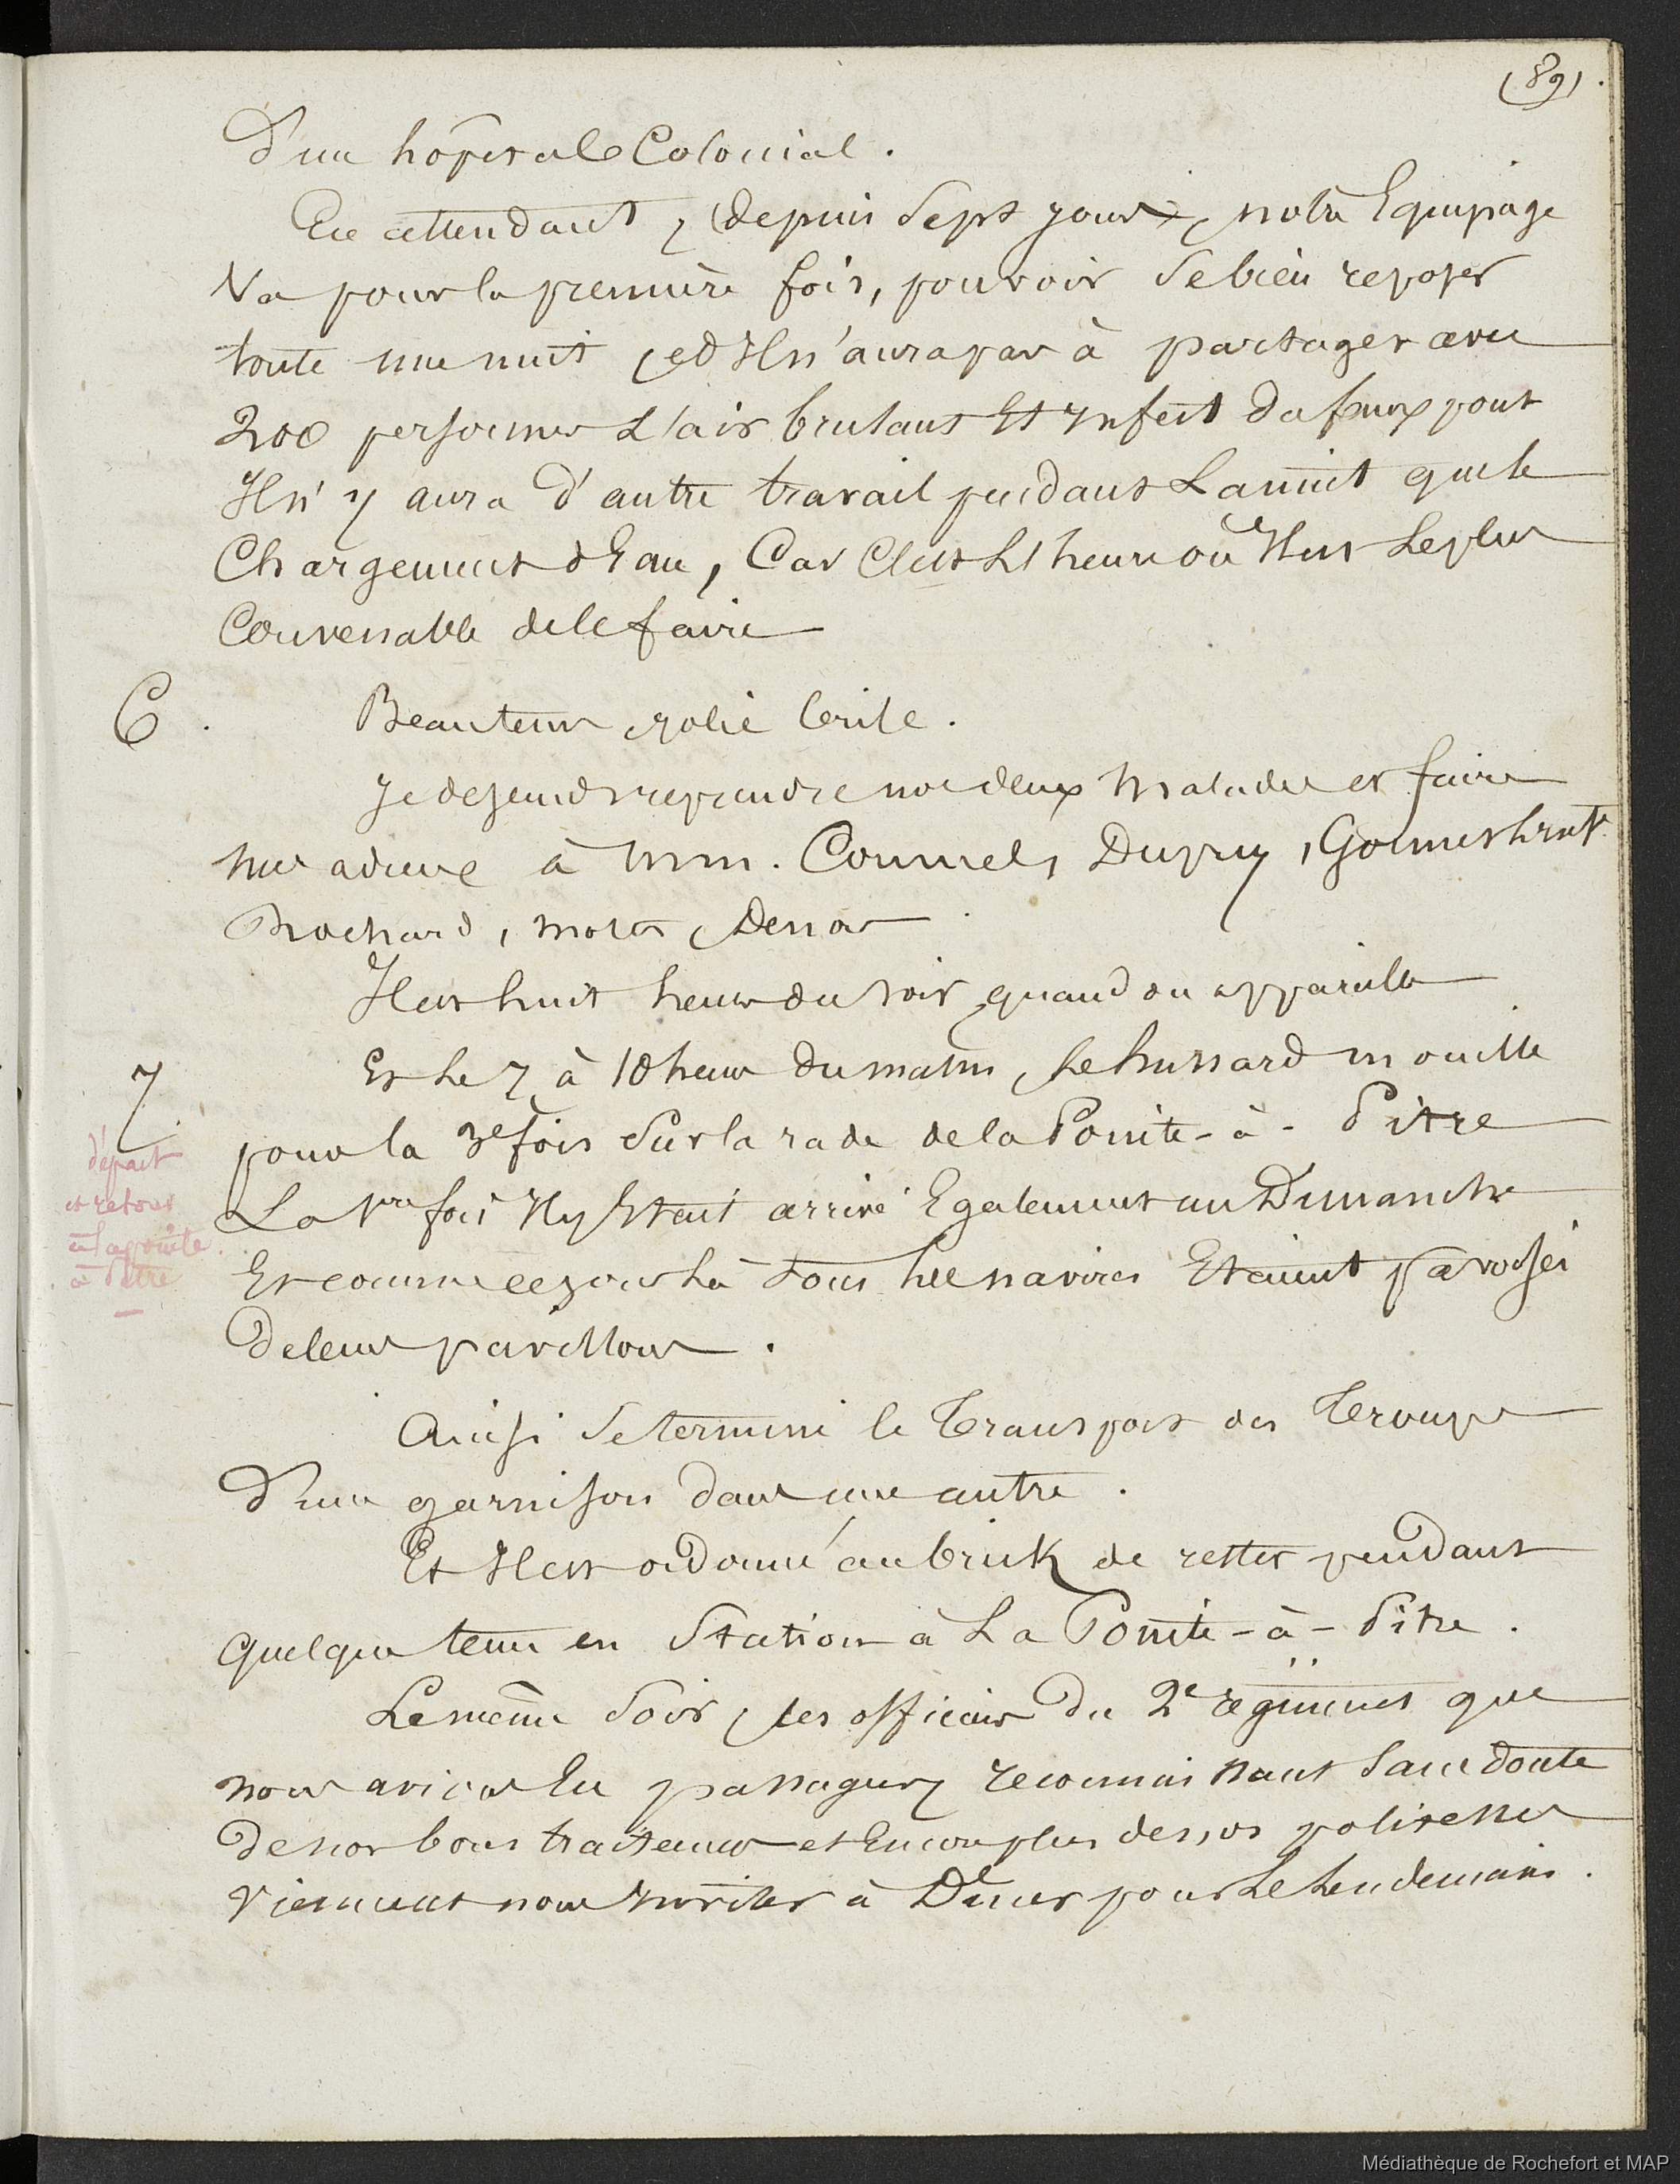 (89).
D'un hôpital Colonial.
En attendant, depuis Sept jours, notre Equipage
Va pour la première fois, pouvoir Se bien reposer
toute une nuit, et Il n'aura pas à partager avec
200 personnes L'air brulant Et Infect du faux pont
Il n'y aura d'autre travail pendant La nuit que le
Chargement d'Eau, Car C'est L'heure où Il est Le plus
Convenable de le faire
6. Beau tems, jolie brise.
Je descends reprendre nos deux Malades et faire
Mes adieux à MM. Cornuel, Dupuy,
Rochard,
Il est huit heures du soir, quand on appareille
7. Et Le 7 à 10 heures du matin, Le hussard mouille
pour la 3e fois Sur la rade de la Pointe-à-Pitre
départ
et retour
à la pointe
à Pitre
La 1re fois Il y Etait arrivé Egalement un Dimanche
Et comme ce jour Là tous Les navires Etaient pavoisés
De leurs pavillons.
Ainsi Se termine le Transport des Troupes
D'une garnison dans une autre.
Et Il est ordonné au brick de rester pendant
quelque tems en Station à La Pointe-à-Pitre.
Le même Soir, les officiers Du 2e régiment que
nous avions Eu passagers, reconnaissant Sans doute
De nos bons traitemens et Encore plus de nos politesses
Viennent nous Inviter à Dîner pour Le Lendemain.
Médiathèque de Rochefort et MAP